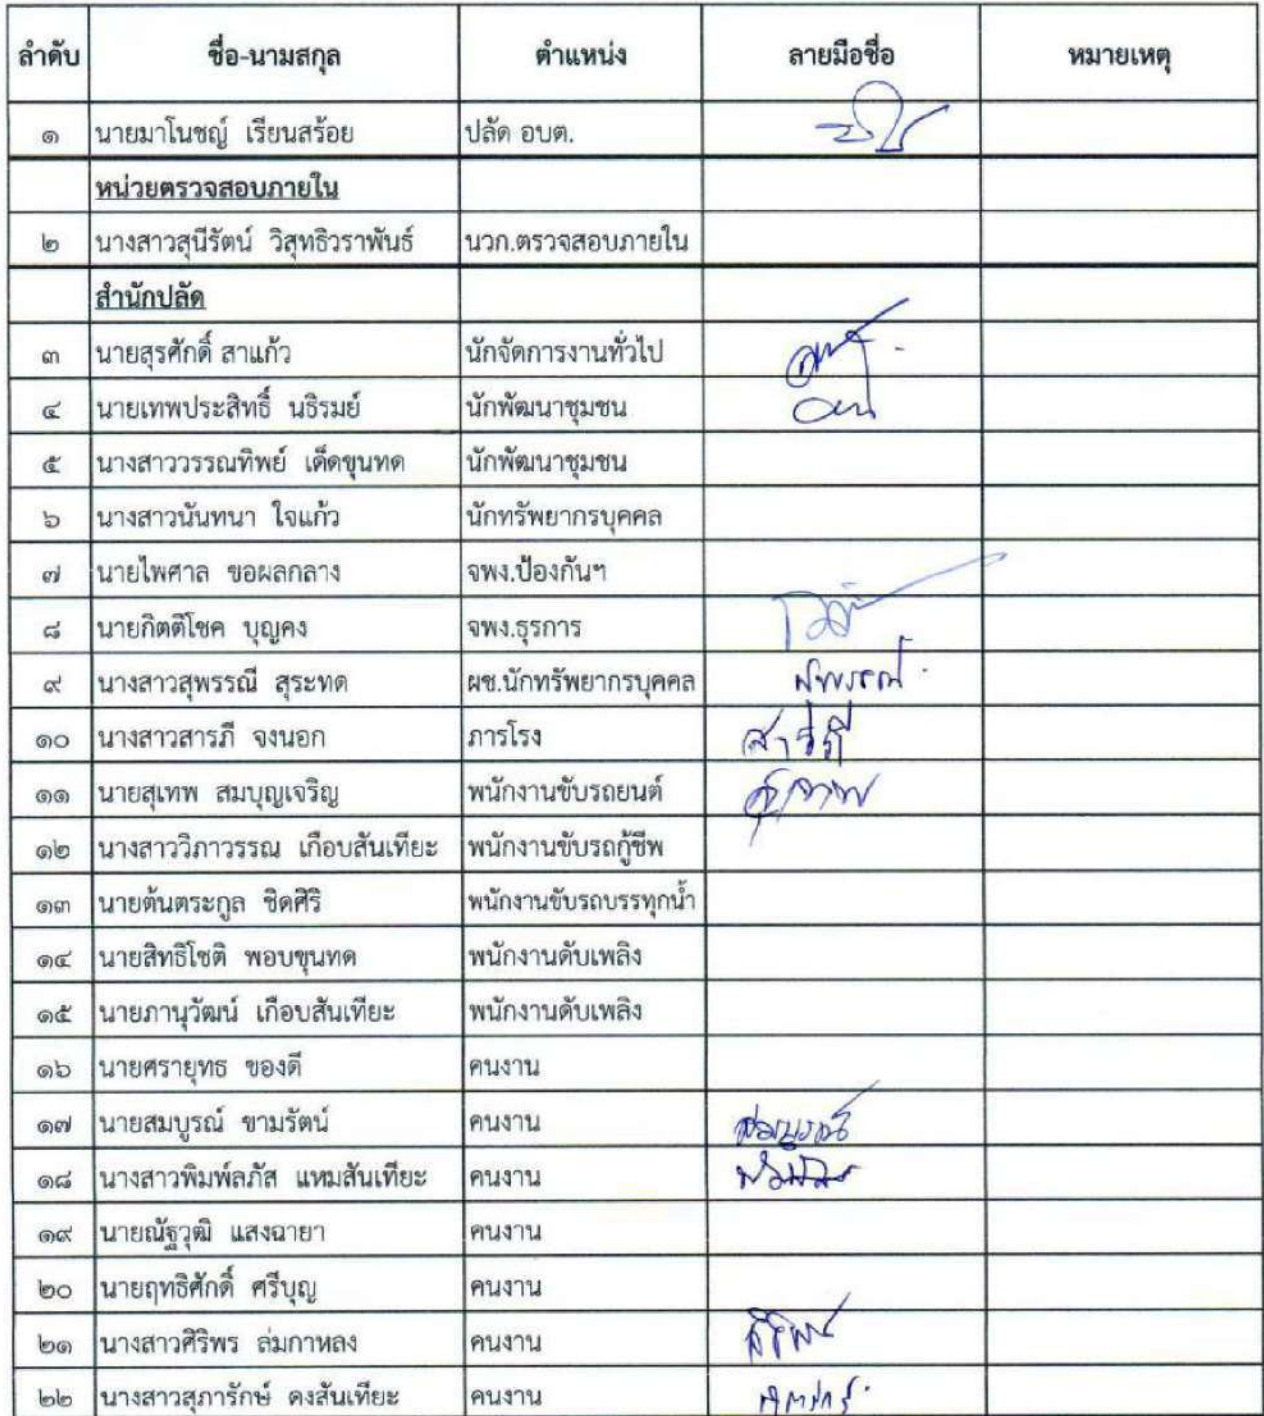 ลำดับ ชื่อ-นามสกุล ตำแหน่ง ลายมือชื่อ หมายเหตุ
๑ นายมาโนชญ์ เรียนสร้อย ปลัด อบต.
หน่วยตรวจสอบภายใน
๒ นางสาวสุนีรัตน์ วิสุทธิวราพันธ์ นวก.ตรวจสอบภายใน
สำนักปลัด
๓ นายสุรศักดิ์ สาแก้ว นักจัดการงานทั่วไป
๔ นายเทพประสิทธิ์ นธิรมย์ นักพัฒนาชุมชน
๕ นางสาววรรณทิพย์ เด็ดขุนทด นักพัฒนาชุมชน
๖ นางสาวนันทนา ใจแก้ว นักทรัพยากรบุคคล
๗ นายไพศาล ขอผลกลาง จพง.ป้องกันฯ
๘ นายกิตติโชค บุญคง จพง.ธุรการ
๙ นางสาวสุพรรณี สุระทด ผช.นักทรัพยากรบุคคล
๑๐ นางสาวสารภี จงนอก ภารโรง สารภี
๑๑ นายสุเทพ สมบุญเจริญ พนักงานขับรถยนต์
๑๒ นางสาววิภาวรรณ เกือบสันเทียะ พนักงานขับรถกู้ชีพ
๑๓ นายต้นตระกูล ชิดศิริ พนักงานขับรถบรรทุกน้ำ
๑๔ นายสิทธิโชติ พอบขุนทด พนักงานดับเพลิง
๑๕ นายภานุวัฒน์ เกือบสันเทียะ พนักงานดับเพลิง
๑๖ นายศรายุทธ ของดี คนงาน
๑๗ นายสมบูรณ์ ขามรัตน์ คนงาน สมบูรณ์
๑๘ นางสาวพิมพ์ลภัส แหมสันเทียะ คนงาน
๑๙ นายณัฐวุฒิ แสงฉายา คนงาน
๒๐ นายฤทธิศักดิ์ ศรีบุญ คนงาน
๒๑ นางสาวศิริพร ล่มกาหลง คนงาน ศิริพร
๒๒ นางสาวสุภารักษ์ ดงสันเทียะ คนงาน